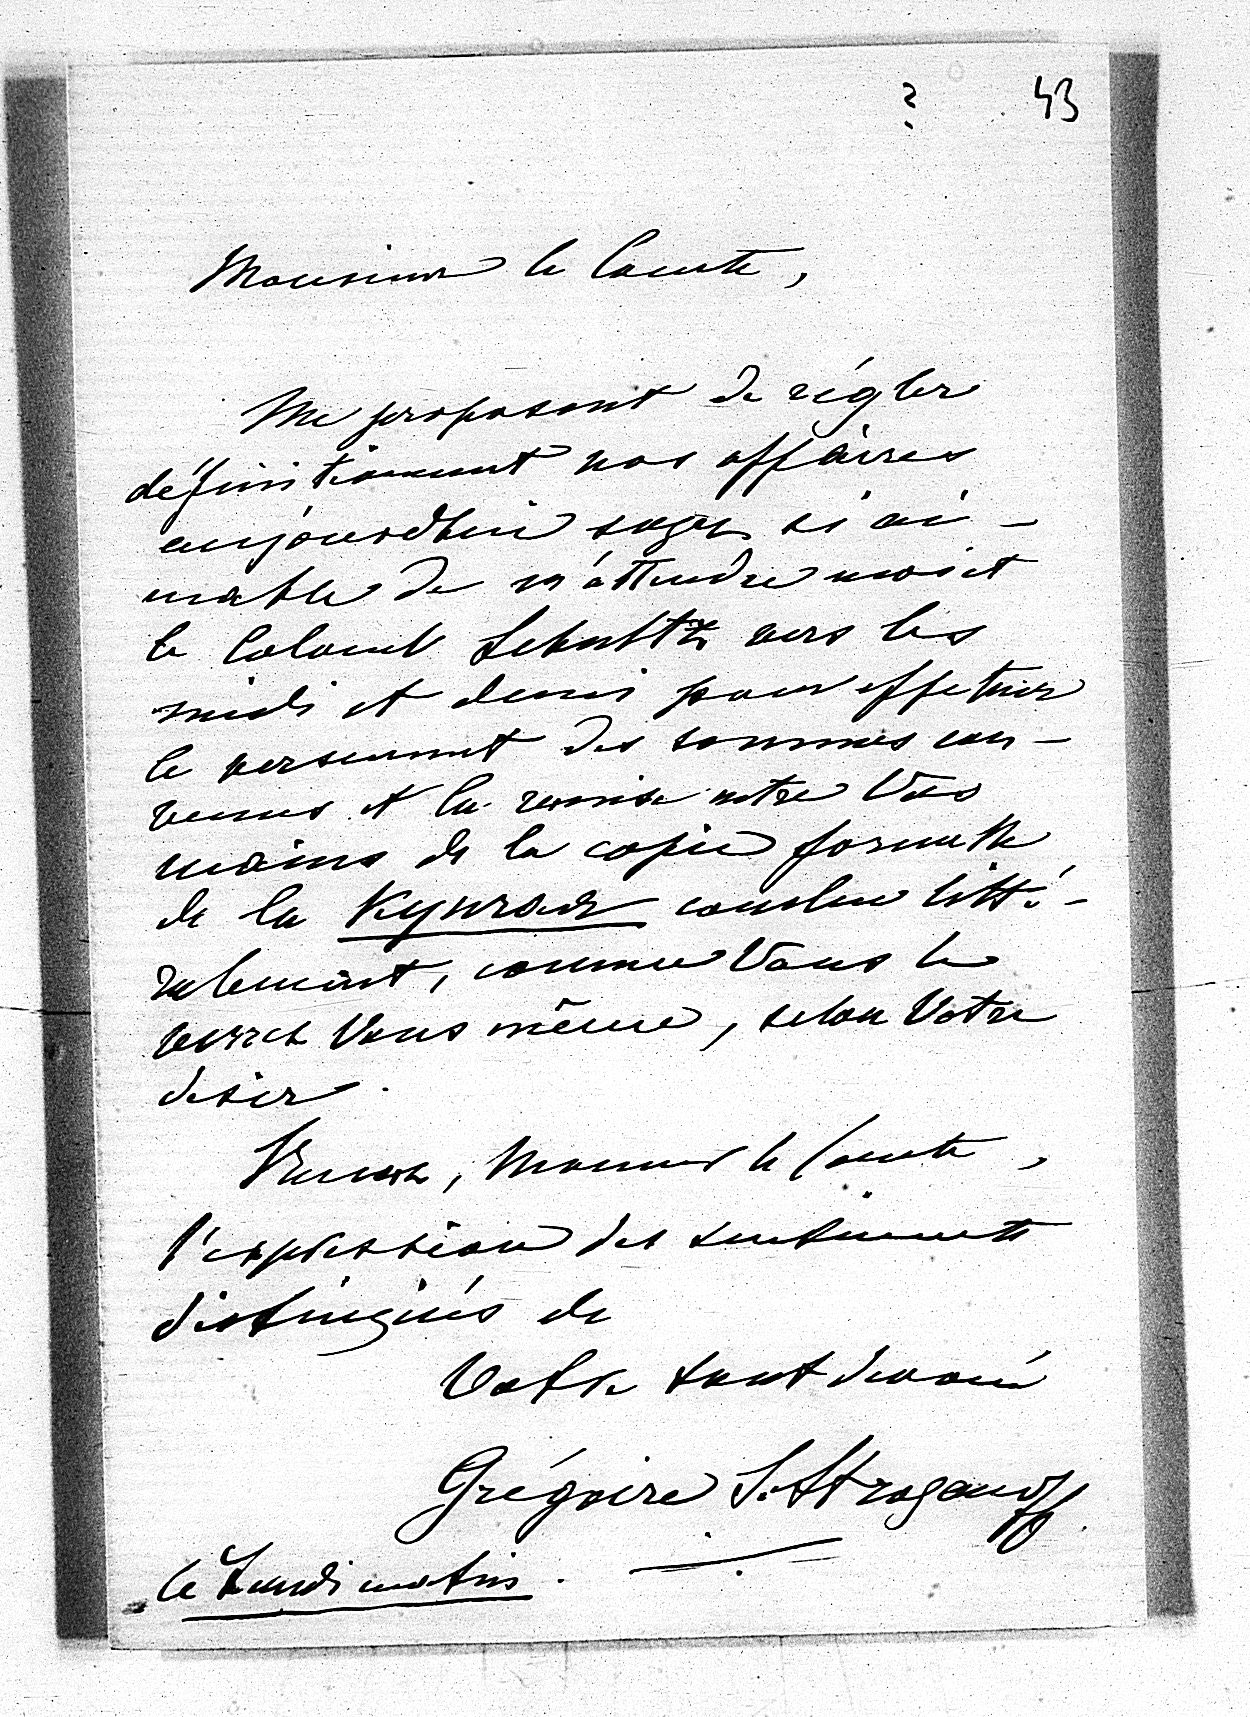 ? 43
Monsieur le Comte,
Me proposant de régler
définitivement nos affaires
aujourd'hui soyez si ai-
mable de m'attendre moi et
le Colonel Schultz vers les
midi et demi pour effectuer
le versement des sommes con-
venues et la remise entre Vos
mains de la copie formelle
de la conclue litté-
ralement, comme Vous le
verrez Vous même, selon Votre
desir.
Recevez, Monsieur le Comte,
l'expression des sentiments
distingués de
Votre tout devoué
Grégoire S. Stroganoff.
le Lundi matin.